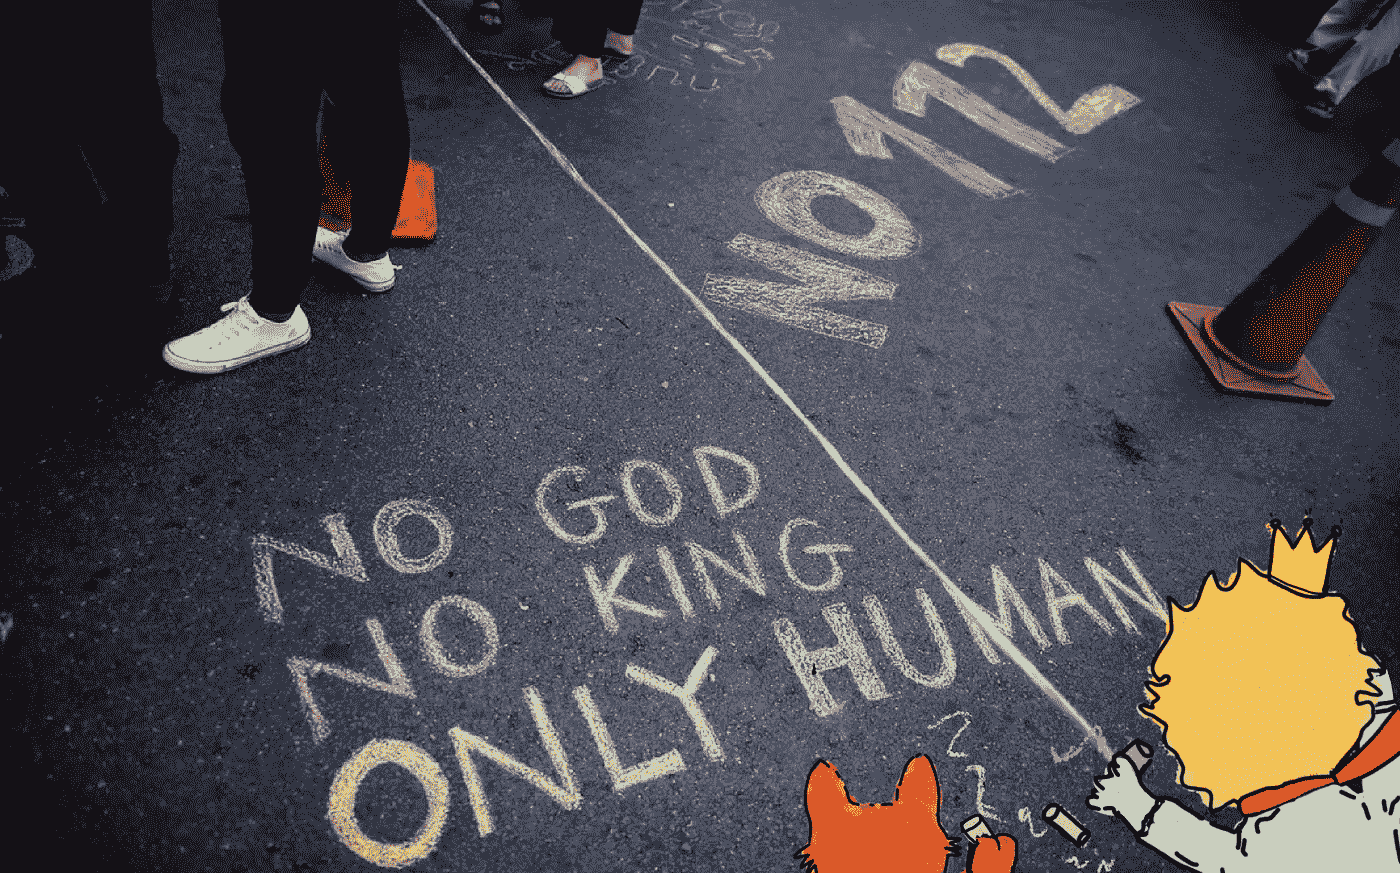 NO 12
NO GOD
NO KING
ONLY HUMAN